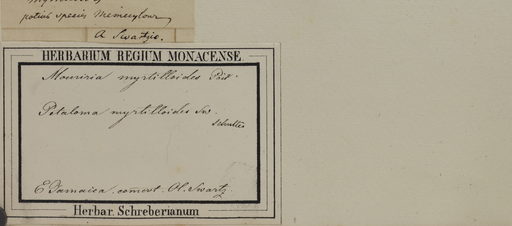 potius species Memecylon
A Swartzio.
HERBARIUM REGIUM MONACENSE.
Mouriria myrtilloides Poir.
Petaloma myrtilloides Sw.
E Jamaica. comm. Ol. Swartz
Herbar. Schreberianum